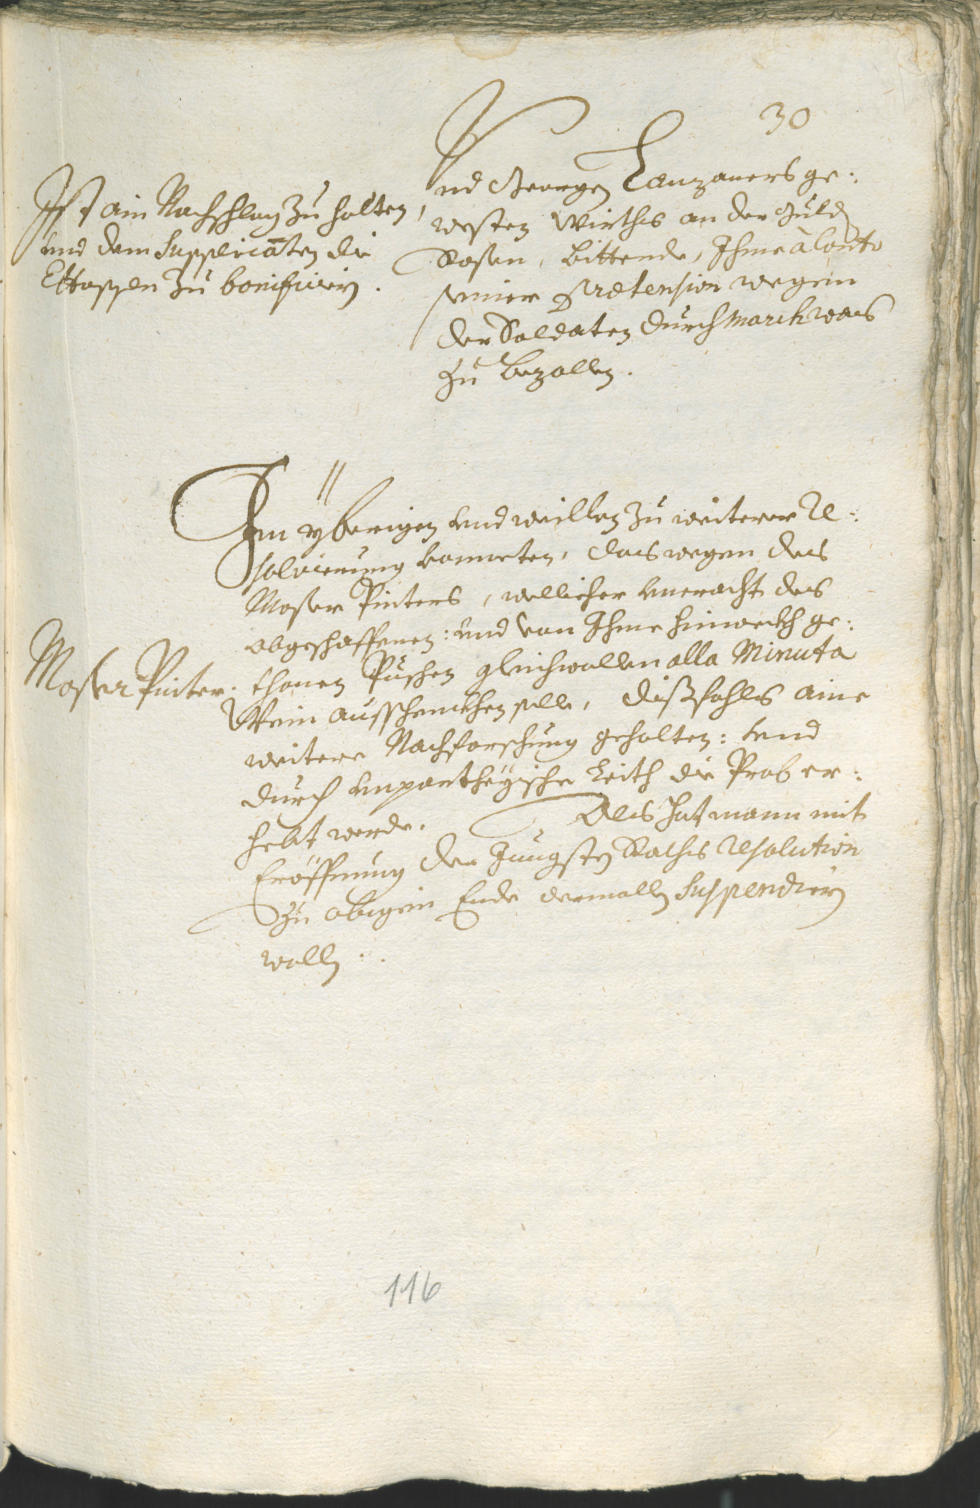 30
Ist ain Nachschlag zu halten,
und dem Supplicanten die
Ettappen zu bonificirn.
Und Georgen Lanzaners ge:
westen Wirths an der Guld
Rosen, bittende, Ihme à Conto
seiner Prætension wegen
der Soldaten Durchmarch was
zu bezallen.
Im yberigen und weillen zu weiterer Re:
solvierung kometen, das wegen des
Moser Pinters, wellicher uneracht des
abgeschaffenen: und von Ihme hinweckh ge:
Moser Pinter.
thanen Puschen gleichwollen alla Minuta
Wein ausschenckhen solle, dißfahls aine
weitere Nachforschung gehalten: und
durch unpartheyische Leith die Prob er:
hebt werde. Als hat mann mit
Eröffnung der Jungsten Raths Resolution
zu obigem Ende dermalln Suspendirn
welln.
116